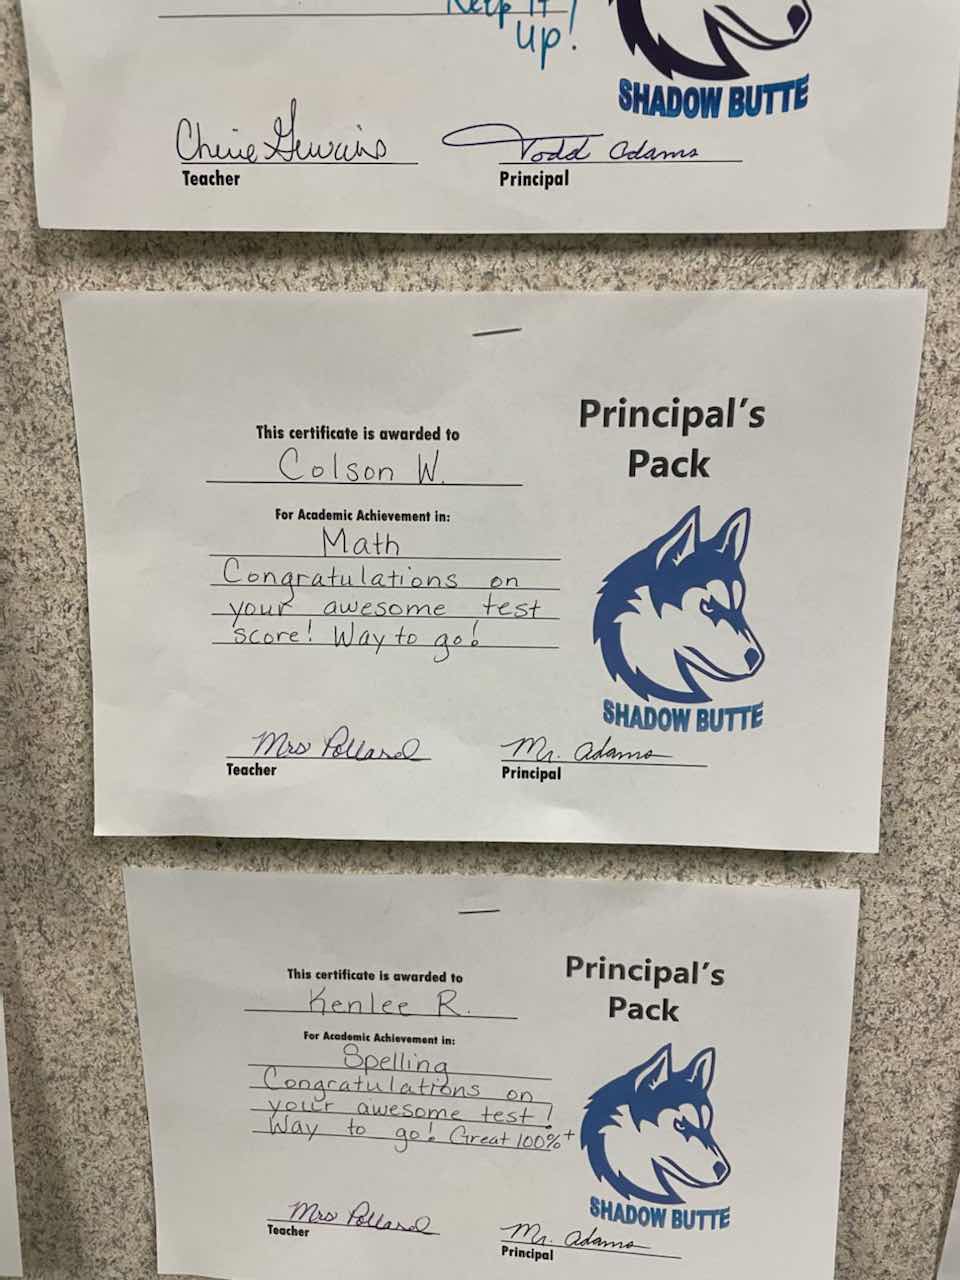 Keep it
up!
SHADOW BUTTE
Todd Adams
Teacher
Principal
Principal's
Pack
This certificate is awarded to
Colson W.
For Academic Achievement in:
Math
Congratulations on
your awesome test
score! Way to go!
SHADOW BUTTE
Mrs Pollard
Mr. Adams
Teacher
Principal
Principal's
Pack
This certificate is awarded to
Kenlee R.
For Academic Achievement in:
Spelling
Congratulations on
your awesome test!
Way to go! Great 100%+
SHADOW BUTTE
Mrs Pollard
Mr. Adams
Teacher
Principal